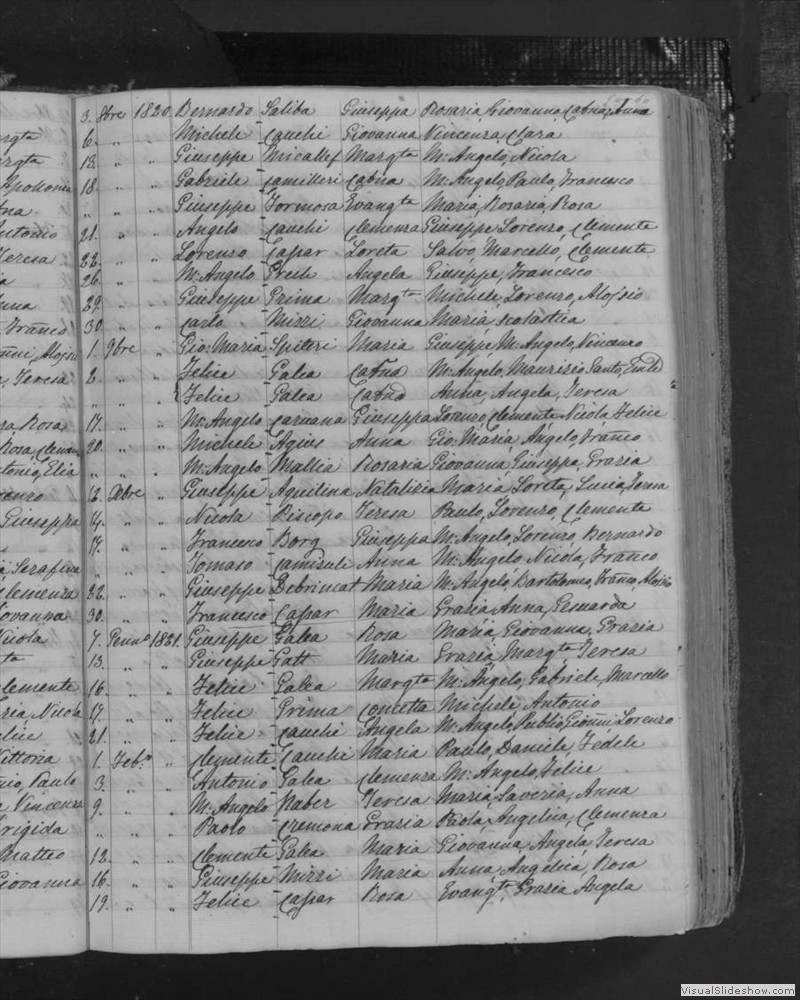 3. 8bre 1820 Bernardo Saliba Giuseppa Rosaria, Giovanna, Catna, Anna
6. " " Michele Cauchi Giovanna Vincenza, Clara
13. " " Giuseppe Micallef Margta M. Angelo, Nicola
18. " " Gabriele Camilleri Catna M. Angelo, Paulo, Francesco
" " " Giuseppe Formosa Evangta Maria, Rosaria, Rosa
21. " " Angelo Cauchi Clemenza Giuseppe Lorenzo, Clemente
22. " " Lorenzo Caspar Loreta Salvo, Marcello, Clemente
26. " " M. Angelo Angela Giuseppe, Francesco
29. " " Giuseppe Prima Margta Michele, Lorenzo, Aloisio
30. " " Carlo Mizzi Giovanna Maria, Scolastica
1. 9bre " Gio: Maria Spiteri Maria Giuseppe M. Angelo, Vincenzo
2. " " Felice Galea Catna M. Angelo, Maurizio Santo,
" " " Felice Galea Catna Anna, Angela, Teresa
17. " " M. Angelo Caruana Giuseppa Lorenzo, Clemente Nicola, Felice
20. " " Michele Agius Anna Gio: Maria, Angelo, Franco
" " " M. Angelo Mallia Rosaria Giovanna, Giuseppa, Grazia
12. Xbre " Giuseppe Aquilina Natalizia Maria Loreta, Lucia, Teresa
14. " " Nicola Piscopo Teresa Paulo, Lorenzo, Clemente
17. " " Francesco Borg Giuseppa M. Angelo, Lorenzo, Bernardo
" " " Tomaso Anna M. Angelo Nicola, Franco
22. " " Giuseppe Debrincat Maria M. Angelo Bartolomeo, Franco, Aloisio
30. " " Francesco Caspar Maria Grazia Anna,
7. Genno 1821. Giuseppe Galea Rosa Maria, Giovanna, Grazia
13. " " Giuseppe Gatt Maria Grazia, Margta, Teresa
16. " " Felice Galea Margta M. Angelo, Gabriele, Marcello
17. " " Felice Prima Concetta Michele Antonio
21. " " Felice Cauchi Angela M. Angelo, Publio Gionni, Lorenzo
1. Febro " Clemente Cauchi Maria Paulo, Daniele Fedele
3. " " Antonio Galea Clemenza M. Angelo, Felice
9. " " M. Angelo Naber Teresa Maria, Saveria, Anna
" " " Paolo Cremona Grazia Paola, Angelica, Clemenza
12. " " Clemente Galea Maria Giovanna, Angela, Teresa
16. " " Giuseppe Mizzi Maria Anna, Angelica, Rosa
19. " " Felice Caspar Rosa Evangta, Grazia Angela
VisualSlideshow.com